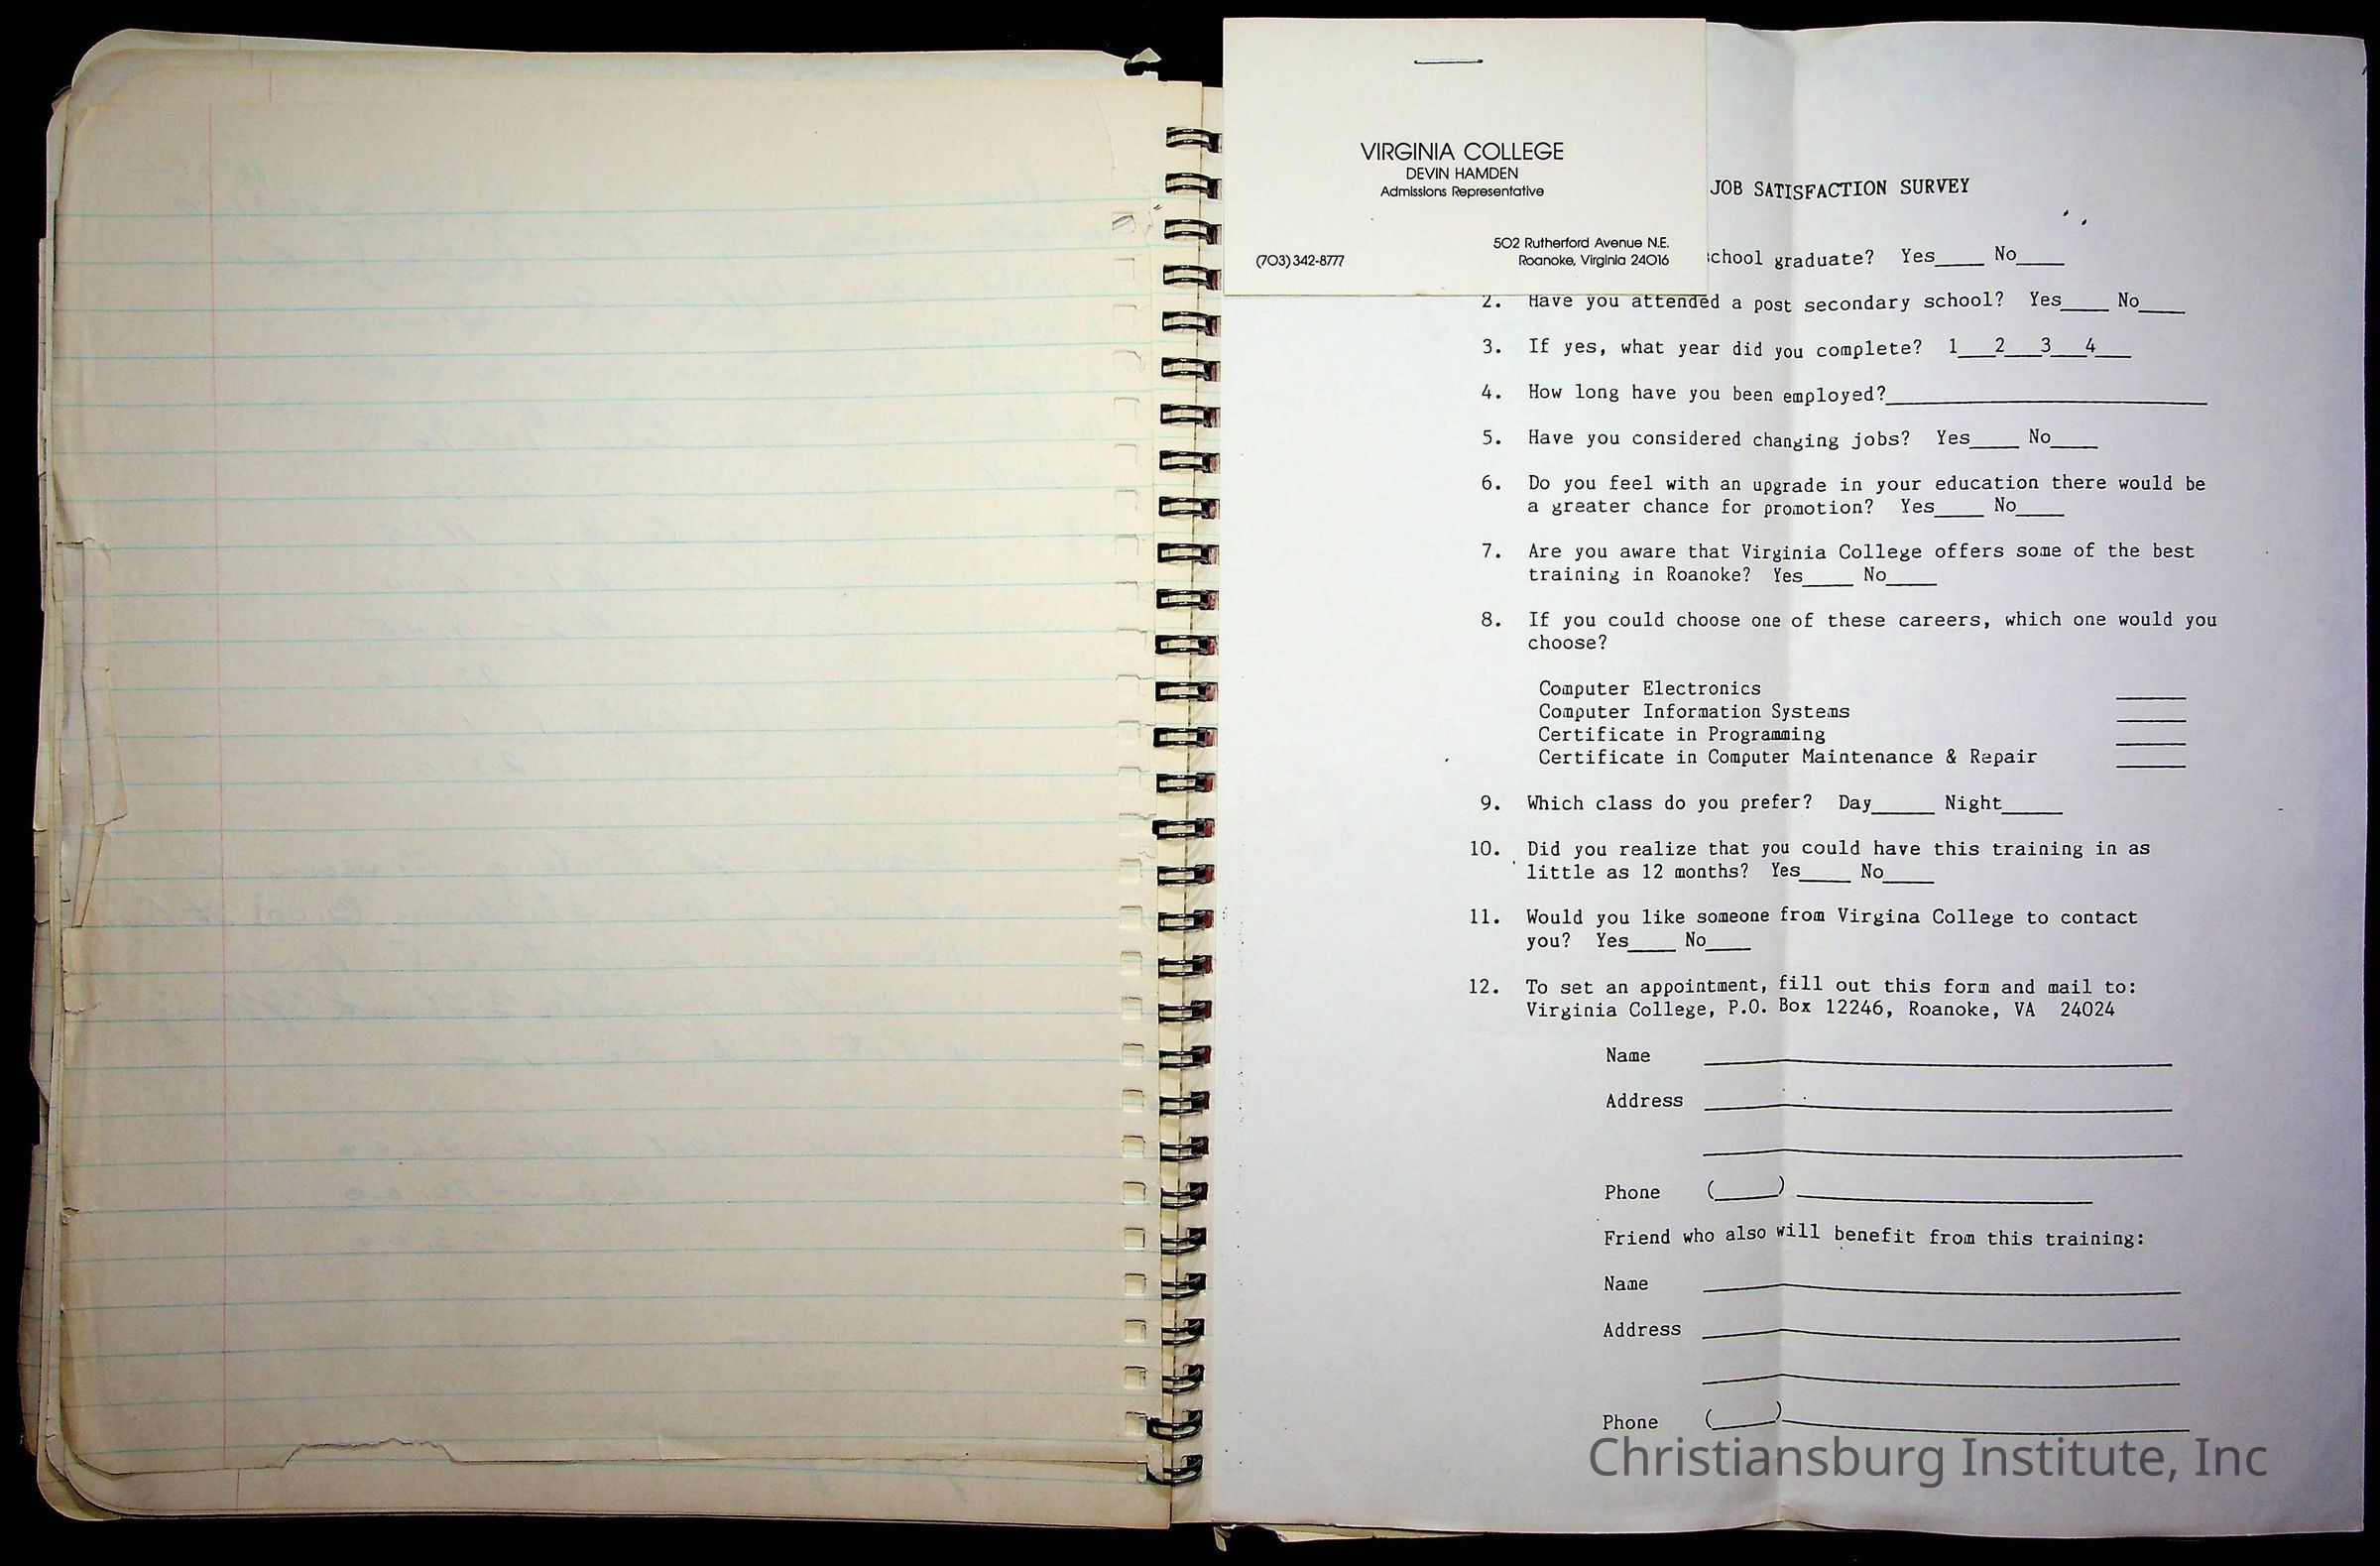 VIRGINIA COLLEGE
DEVIN HAMDEN
Admissions Representative
(703) 342-8777
502 Rutherford Avenue N.E.
Roanoke, Virginia 24016
JOB SATISFACTION SURVEY
chool graduate? Yes____ No____
2. Have you attended a post secondary school? Yes____ No____
3. If yes, what year did you complete? 1___2___3___4___
4. How long have you been employed?____________________________
5. Have you considered changing jobs? Yes____ No____
6. Do you feel with an upgrade in your education there would be
a greater chance for promotion? Yes____ No____
7. Are you aware that Virginia College offers some of the best
training in Roanoke? Yes____ No____
8. If you could choose one of these careers, which one would you
choose?
Computer Electronics ______
Computer Information Systems ______
Certificate in Programming ______
Certificate in Computer Maintenance & Repair ______
9. Which class do you prefer? Day_____ Night_____
10. Did you realize that you could have this training in as
little as 12 months? Yes____ No____
11. Would you like someone from Virgina College to contact
you? Yes____ No____
12. To set an appointment, fill out this form and mail to:
Virginia College, P.O. Box 12246, Roanoke, VA 24024
Name ____________________
Address ____________________
____________________
Phone (_____) ____________________
Friend who also will benefit from this training:
Name ____________________
Address ____________________
____________________
Phone (_____)____________________
Christiansburg Institute, Inc